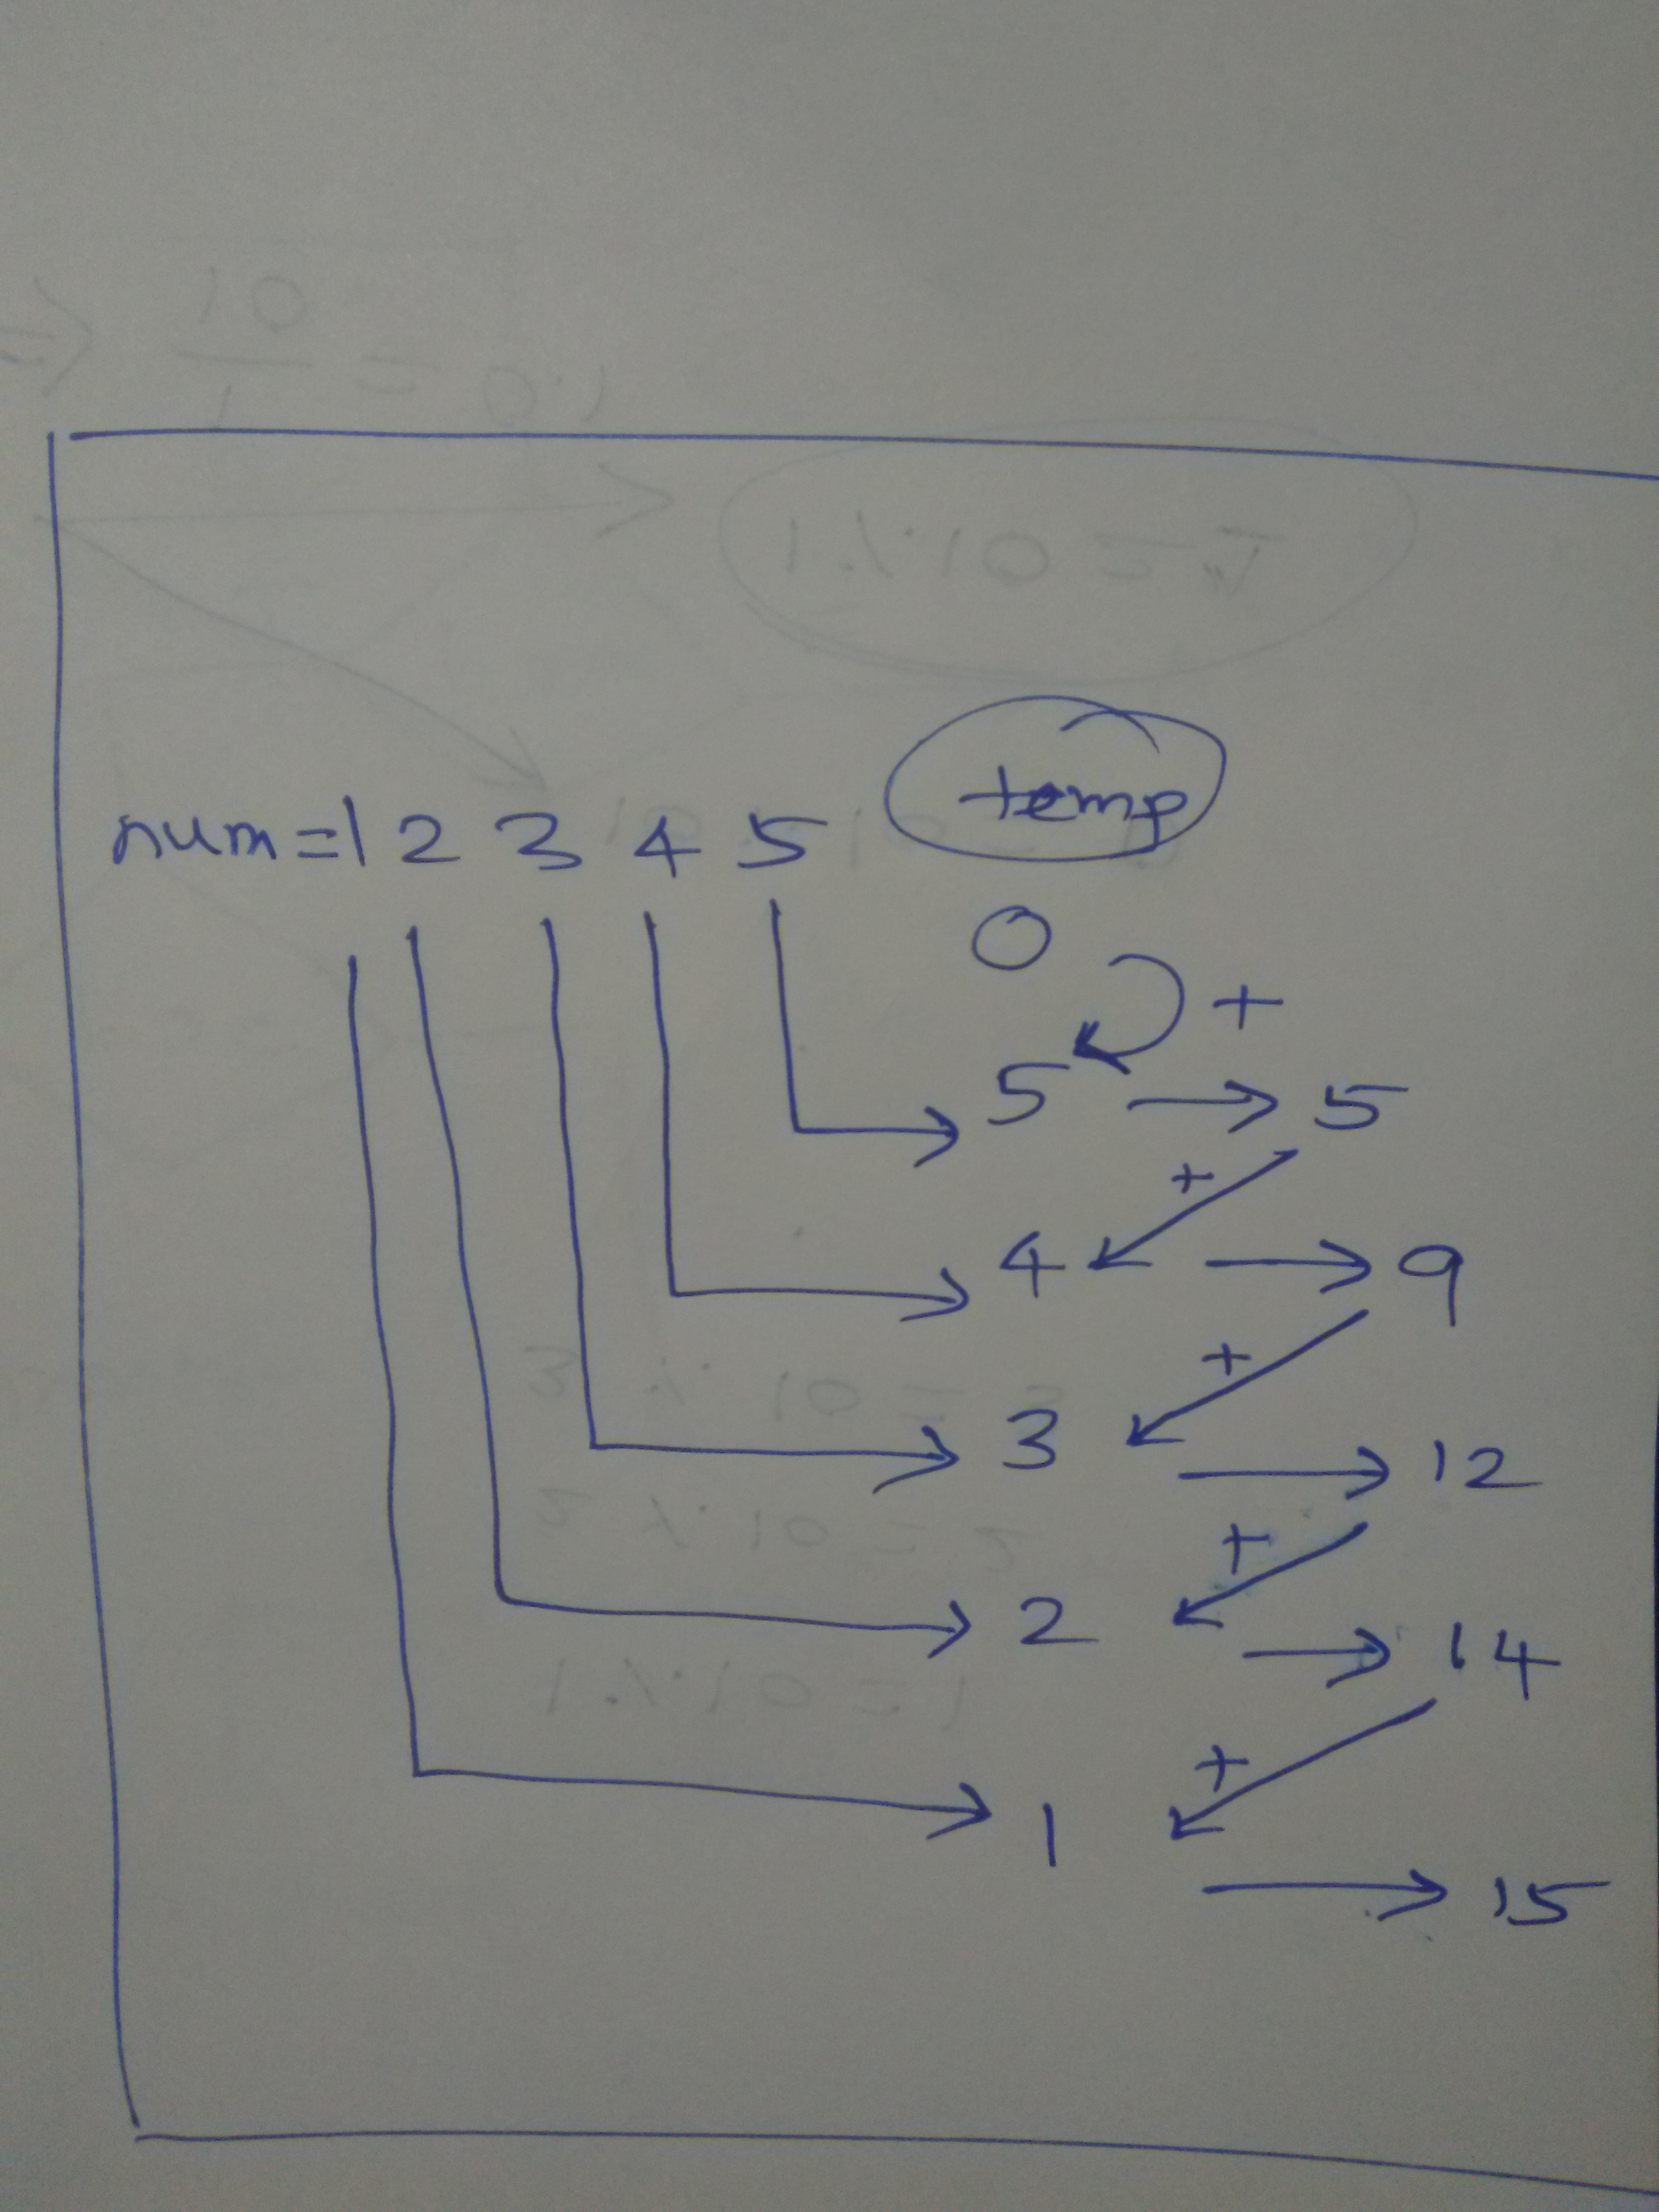 num = 1 2 3 4 5 temp
0
+
5 → 5
+
4 → 9
+
3 → 12
+
2 → 14
+
1 → 15